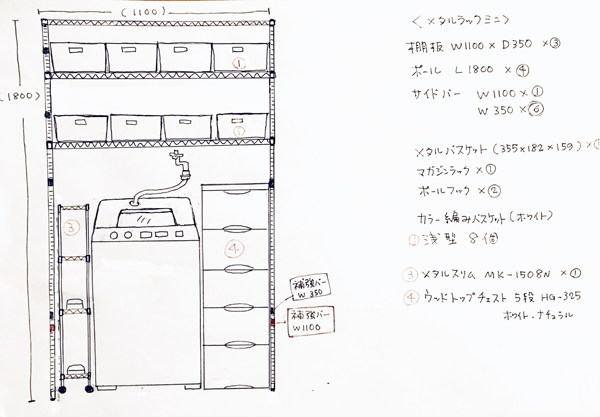 (1100)
(1800)
①
①
③
④
補強バー
W 350
補強バー
W1100
〈メタルラックミニ〉
棚板 W1100 × D350 ×③
ポール L 1800 ×④
サイドバー W1100 ×①
W 350 ×⑥
メタルバスケット(355×182×159)×①
マガジンラック ×①
ポールフック ×②
カラー編みバスケット(ホワイト)
① 浅型 8個
③ メタルスリム MK-1508N ×①
④ ウッドトップチェスト 5段 HG-325
ホワイト・ナチュラル